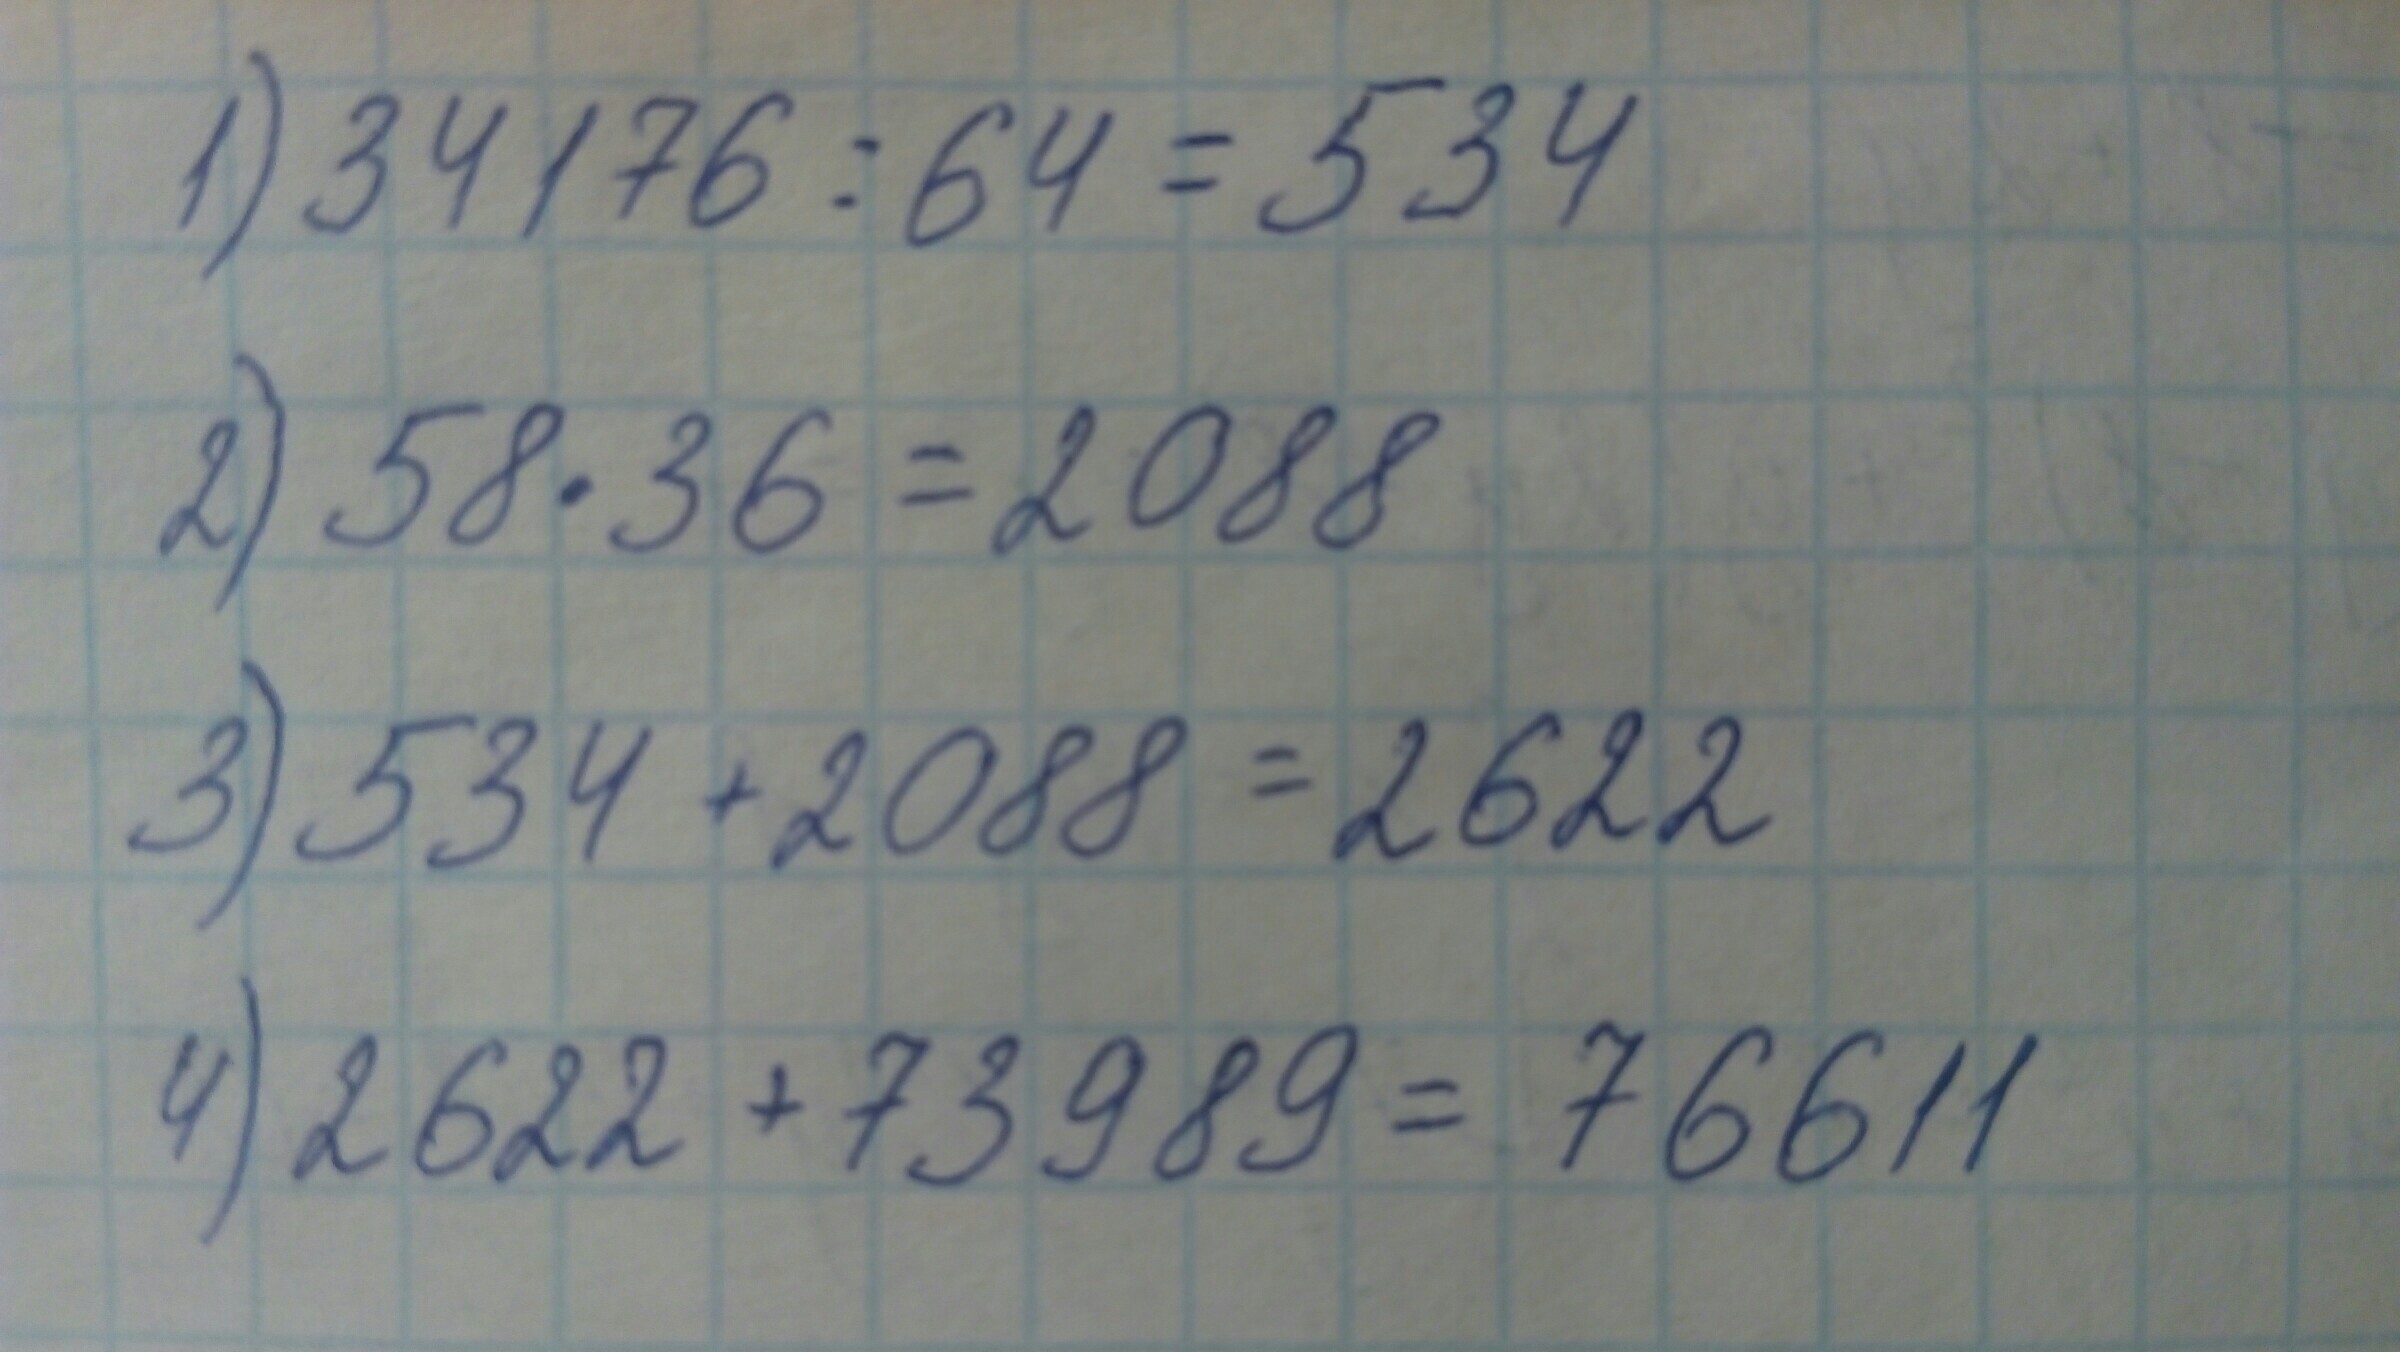 1) 34176 : 64 = 534
2) 58 · 36 = 2088
3) 534 + 2088 = 2622
4) 2622 + 73989 = 76611